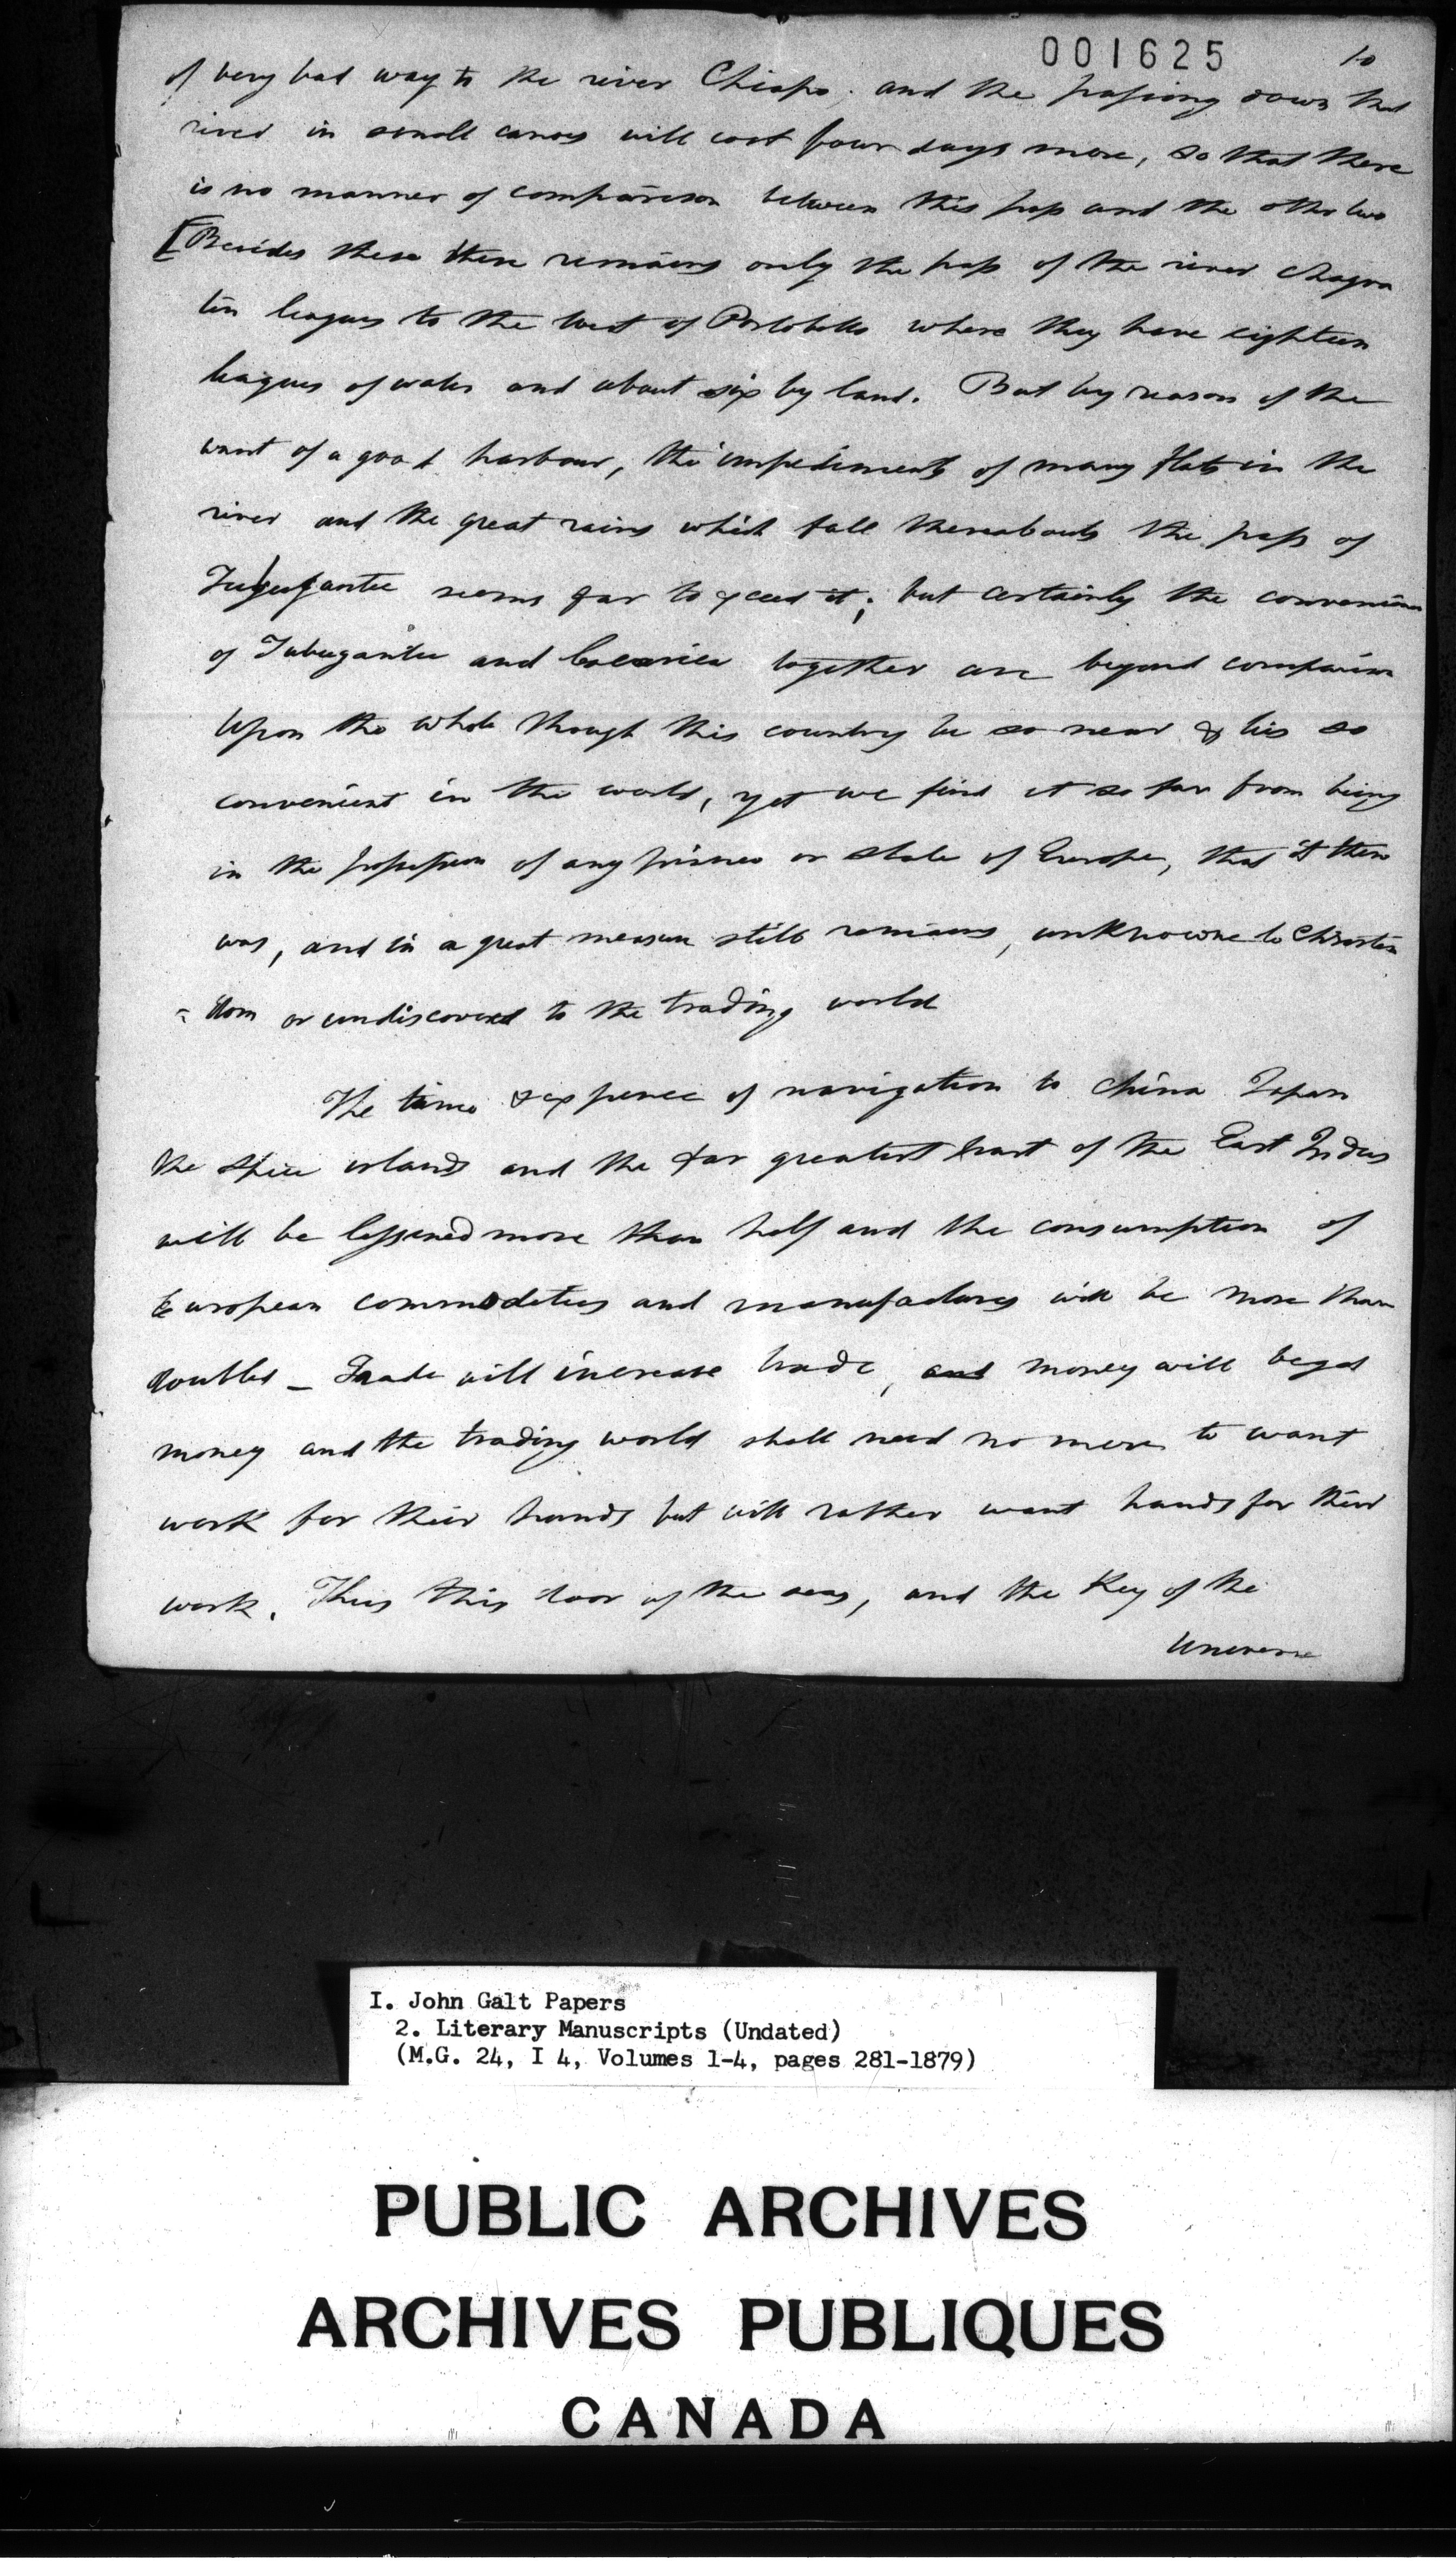 001625
10
of very bad way to the river Chiapo; and the passing down that
river in small canoes will cost four days more, so that there
is no manner of comparison between this pass and the other two
[Besides these there remains only the pass of the river Chagra
ten leagues to the west of Portobello where they have eighteen
leagues of water and about six by land. But by reason of the
want of a good harbour, the impediments of many flats in the
river and the great rains which fall thereabouts the pass of
Tubugantee seems far to exceed it; but certainly the convenience
of Tubugantee and together are beyond comparison
Upon the whole though this country be so near & lies so
convenient in the world, yet we find it so far from being
in the possession of any prince or state of Europe, that it then
was, and in a great measure still remains, unknowne to Christen
= dom or undiscovered to the trading world
The time & expence of navigation to China Japan
the spice islands and the far greatest part of the East Indies
will be lessened more than half and the consumption of
European commodeties and manufactures will be more than
doubled _ Trade will increase trade, and money will beget
money and the trading world shall need no more to want
work for their hands but will rather want hands for their
work. Thus this door of the seas, and the Key of the
Universe
I. John Galt Papers
2. Literary Manuscripts (Undated)
(M.G. 24, I 4, Volumes 1-4, pages 281-1879)
PUBLIC ARCHIVES
ARCHIVES PUBLIQUES
CANADA